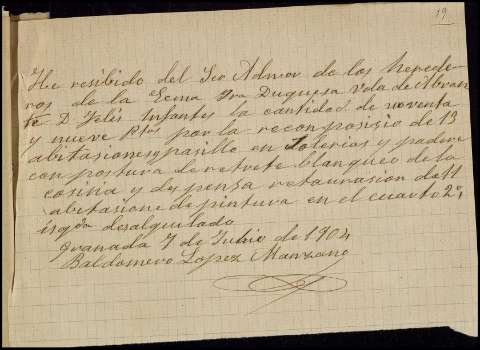 19
He resibido del Sro Admor de los herede-
ros de la Ecma Sra Duquesa Vda de Abran-
te D Felis Infantes la cantidad de noventa
y nueve Ptas por la recomposisio de 13
abitasiones y pasillo en Solerias y paderes
conpostura de retrete blanqueo de la
cosina y despensa retaurasion de 11
abitasione de pintura en el cuarto 2º,
isqda desalquilado
Granada 7 de Julio de 1904
Baldomero Lopez Manzano